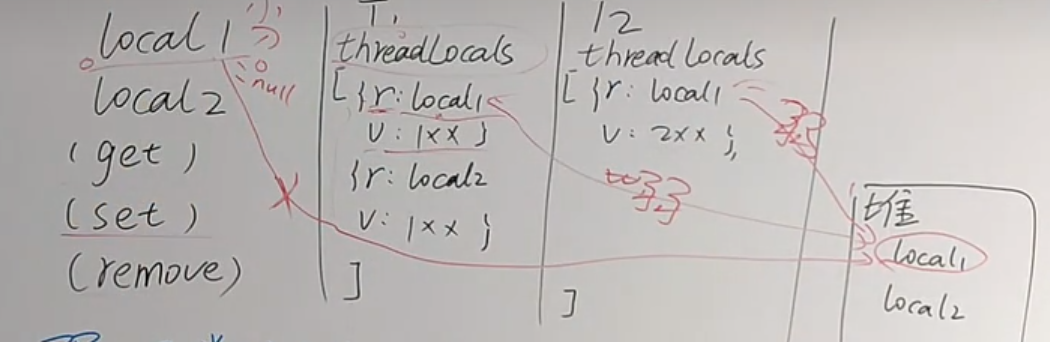 local1
null
local2
(get)
(set)
(remove)
T1
threadLocals
[{r: local1
v: 1xx }
{r: local2
v: 1xx }
]
T2
threadLocals
[{r: local1
v: 2xx },
]
弱
弱
堆
local1
local2